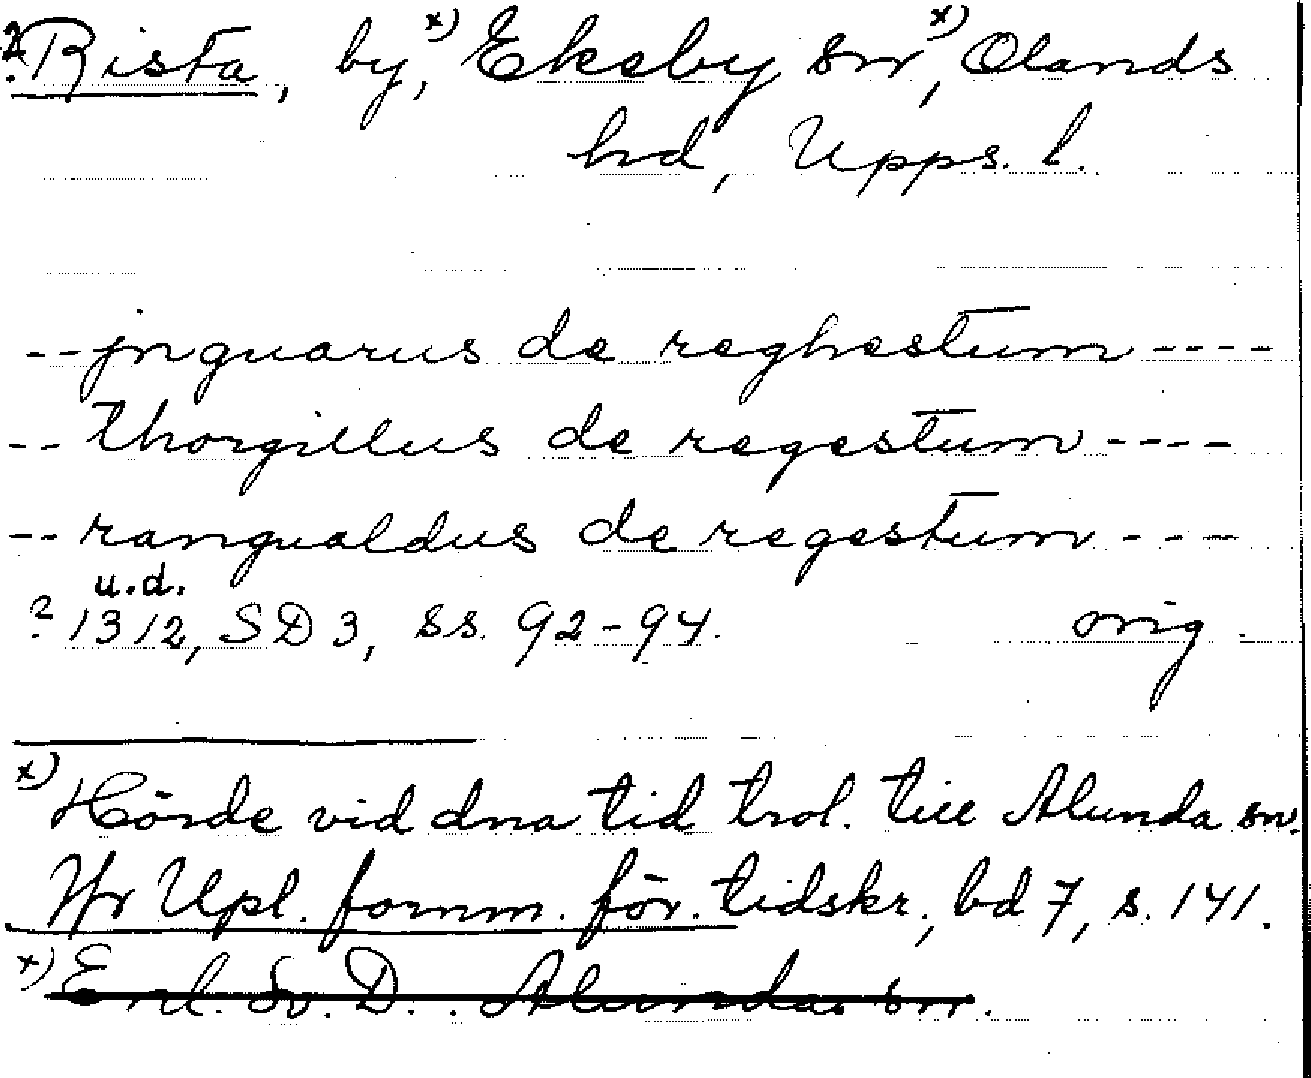 ? Rista, by, x) Ekeby sn, x) Olands
hd, Upps. l.
-- jnguarus de reghestum ----
-- thorgillus de regestum ----
-- rangualdus de regestum ----
u.d.
? 1312, SD 3, ss. 92-94. orig
x) Hörde vid dna tid trol. till Alunda sn.
Jfr Upl. fornm. för. tidskr., bd 7, s. 141.
x) Enl. Sv. D. . Alundas sn.